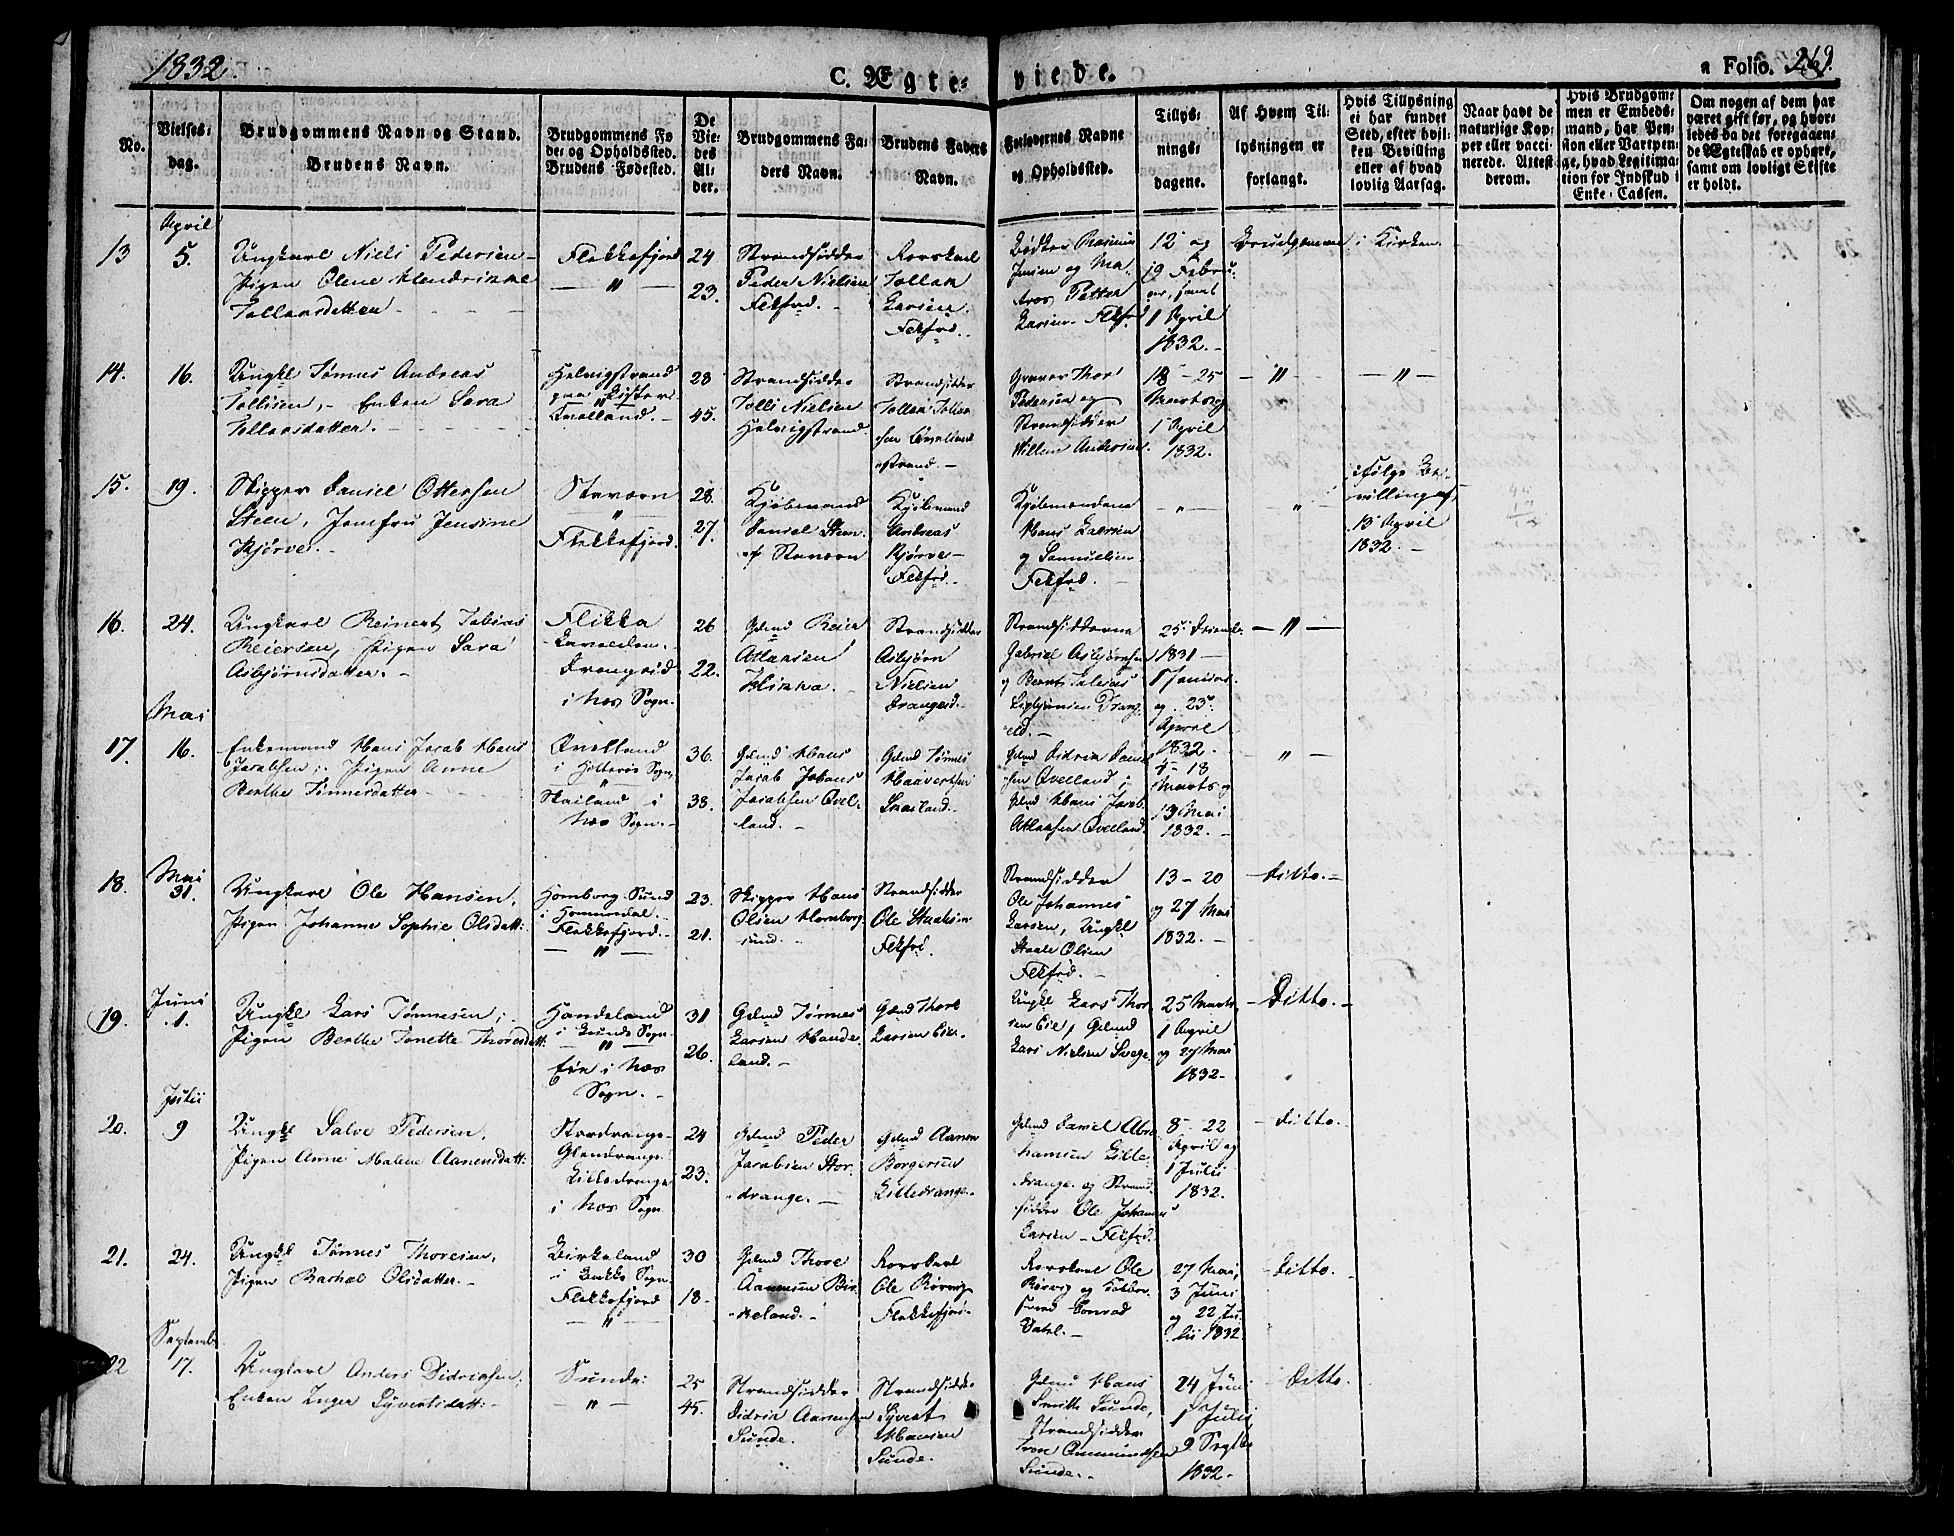 1832.
C. Ægte- viede.
a Folio. 269.
No.
Vielses-
dag.
Brudgommens Navn og Stand.
Brudens Navn.
Brudgommens Fø-
de- og Opholdssted.
Brudens Fødested.
De
Vie-
des
Al-
der.
Brudgommens Fa-
ders Navn.
Brudens Faders
Navn.
Forlovernes Navne
og Opholdssted.
Tillys-
nings-
dagene.
Af Hvem Til-
lysningen er
forlangt.
Hvis Tillysning
ei har fundet
Sted, efter hvil-
ken Bevilling
eller af hvad
lovlig Aarsag.
Naar havt de
naturlige Kop-
per eller vacci-
nerede. Attest
derom.
Hvis Brudgom-
men er Embeds-
mand, har Pen-
sion eller Vartpen-
ge, hvad Legitima-
tion for Indskud i
Enke-Cassen.
Om nogen af dem har
været gift før, og hvor-
ledes da det foregaaen-
de Ægteskab er ophørt,
samt om lovligt Skifte
er holdt.
April
13
5.
Ungkarl Niels Pedersen
Pigen Olene Hendrikke
Tollaksdatter
Flekkefjord
— " —
24
23.
Strandsidder
Peder Nielsen
Flkfrd.
Rorskarl
Tollak
Larsen
Flkfrd.
Bødker Rasmus
Jensen og Ma-
tros Petter
Larsen Flkf.
12 og
19 Febru-
ar, samt
1 April
1832.
Brudgommen
i Kirken.
14.
16.
Ungkl Tønnes Andreas
Tollisen, - Enken Sara
Tollaksdatter.
Helvigstrand
paa Lister
Qvelland.
28
45.
Strandsidder
Tolli Nielsen
Helvigstrand
Strandsidder
Tollak Tollak
sen
strand.
Graver Thor
Pedersen og
Strandsidder
Willum Andersen.
18 - 25
Marts og
1 April
1832.
— " —
— " —
15.
19.
Skipper Daniel Ottersen
Steen, Jomfru Jensine
Kjørve.
Staværn
"
Flekkefjord.
28.
27.
Kjøbmand
Daniel Steen
af Staværn
Kjøbmand
Andreas
Kjørve
Flkfrd.
Kjøbmændene
Hans Larsen
og Samuelsen
Flkfrd.
- " -
- " -
ifølge Be-
villing af
13 April
1832.
16.
24.
Ungkarl Reinert Tobias
Reiersen, Pigen Sara
Asbjørnsdatter.
Flikka
Drangeid
i Næs Sogn.
26
22.
Gdmd Reier
Atlaksen
Flikka.
Strandsidder
Asbjørn
Nielsen
Drangeid.
Strandsidderne
Gabriel Asbjørnsen
og Bernt Tobias
Drang-
eid.
25 Decemb.
1831 -
1 Januar.
og 23
April
1832.
— " —
Mai
17.
16.
Enkemand Hans Jacob Hans
Jacobsen; Pigen Anne
Berthe Tønnesdatter
Qvelland
i Hitterøe Sogn
"
Skailand i
Næs Sogn.
36.
38.
Gdmd Hans
Jacob Johans
Jacobsen Qvel-
land.
Gdmd Tønnes
Haaversen
Skailand.
Gdmd Didrik Daniel
sen Qvelland;
Gdmd Hans Jacob
Atlaksen Qvelland.
4 - 18
Marts og
13 Mai
1832.
- " -
18.
Mai
31.
Ungkarl Ole Hansen,
Pigen Johanne Sophie Olsdatt:
Homborg-Sund
i Hommedal.
Flekkefjord.
— " —
23.
21.
Skipper Hans
Olsen Homborg-
sund.
Strandsidder
Ole Staalesen
Flkfrd.
Strandsidder
Ole Johannes
Larsen, Ungkl
Staale Olsen
Flkfrd.
13 - 20
og 27 Mai
1832.
- ditto.
19.
Juni
1.
Ungkl Lars Tønnesen;
Pigen Berthe Tonette Thoresdatt:
Handeland
i Lunde Sogn
— " —
Eie i Næs
Sogn.
31
26.
Gdmd Tønnes
Larsen Hande-
land.
Gdmd Thore
Larsen Eie.
Ungkl Lars Thor-
sen Eie, Gdmd
Lars Nielsen Svege.
25 Marts
1 April
og 27 Mai
1832.
- Ditto. -
Julii
20.
9
Ungkl Salve Pedersen,
Pigen Anne Malene Aanensdatt:
Stordrange
Lilledrange
i Næs Sogn
24
23.
Gdmd Peder
Jacobsen Stor-
drange.
Gdmd Aanen
Borgersen
Lilledrange.
Gdmd Daniel Abra-
hamsen Lille-
drange. og Strand-
sidder Ole Johannes
Larsen - Flkfrd.
8 - 22
April og
1 Julii
1832.
- ditto.
21.
24.
Ungkl Tønnes Thoresen,
Pigen Rachel Olsdatter.
Birkeland
i Bakke Sogn
Flekkefjord
— " —
30
18.
Gdmd Thore
Aanensen Bir-
keland.
Rorskarl
Ole Rørvig
Flekkefjord.
Rorskarl Ole
Rørvig og
Conrad
Dahl.
27 Mai,
3 Juni
og 22 Ju-
lii 1832.
- ditto.
Septemb.
22
17.
Ungkarl Anders Didriksen;
Enken Inger Syvertsdatt:
Sunde.
— " —
25
45.
Strandsidder
Didrik Aanensen
Sunde.
Strandsidder
Syvert
Hansen
Sunde.
Gdmd Hans
Smith Sunde,
Strandsidder
Iver Ommundsen
Sunde.
24 Juni
1 Julii
9 Septbr
1832.
- Ditto.